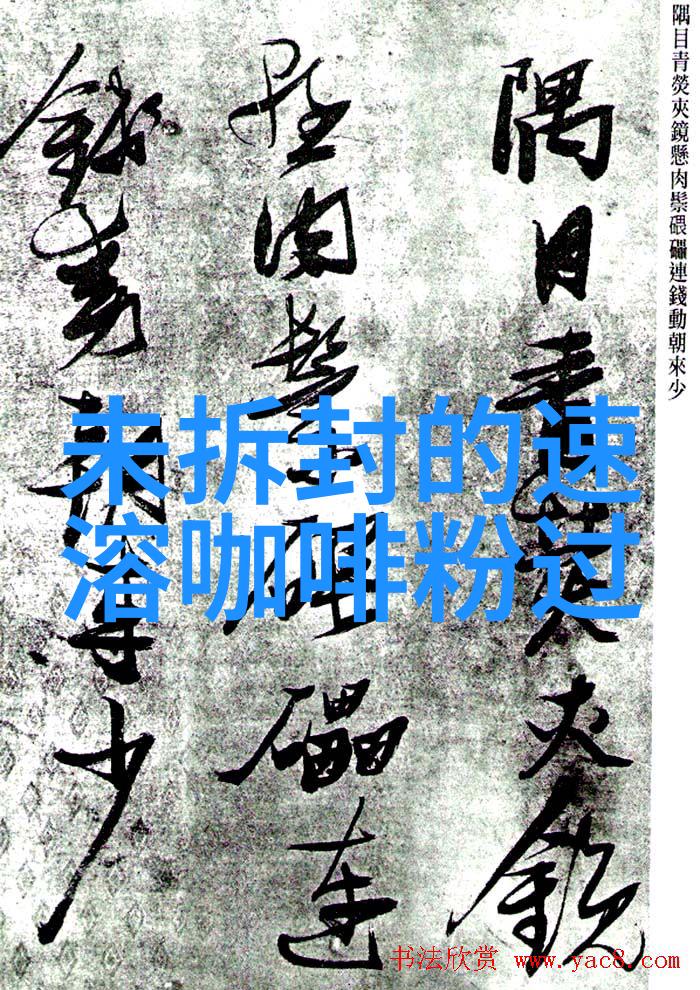 隅目青熒夾鏡懸肉鬃碨礧連錢動朝來少
隅目青熒夾鏡
懸肉鬃碨礧連
錢動朝來少
未拆封的速
溶咖啡粉过
书法欣赏 www.yac8.com